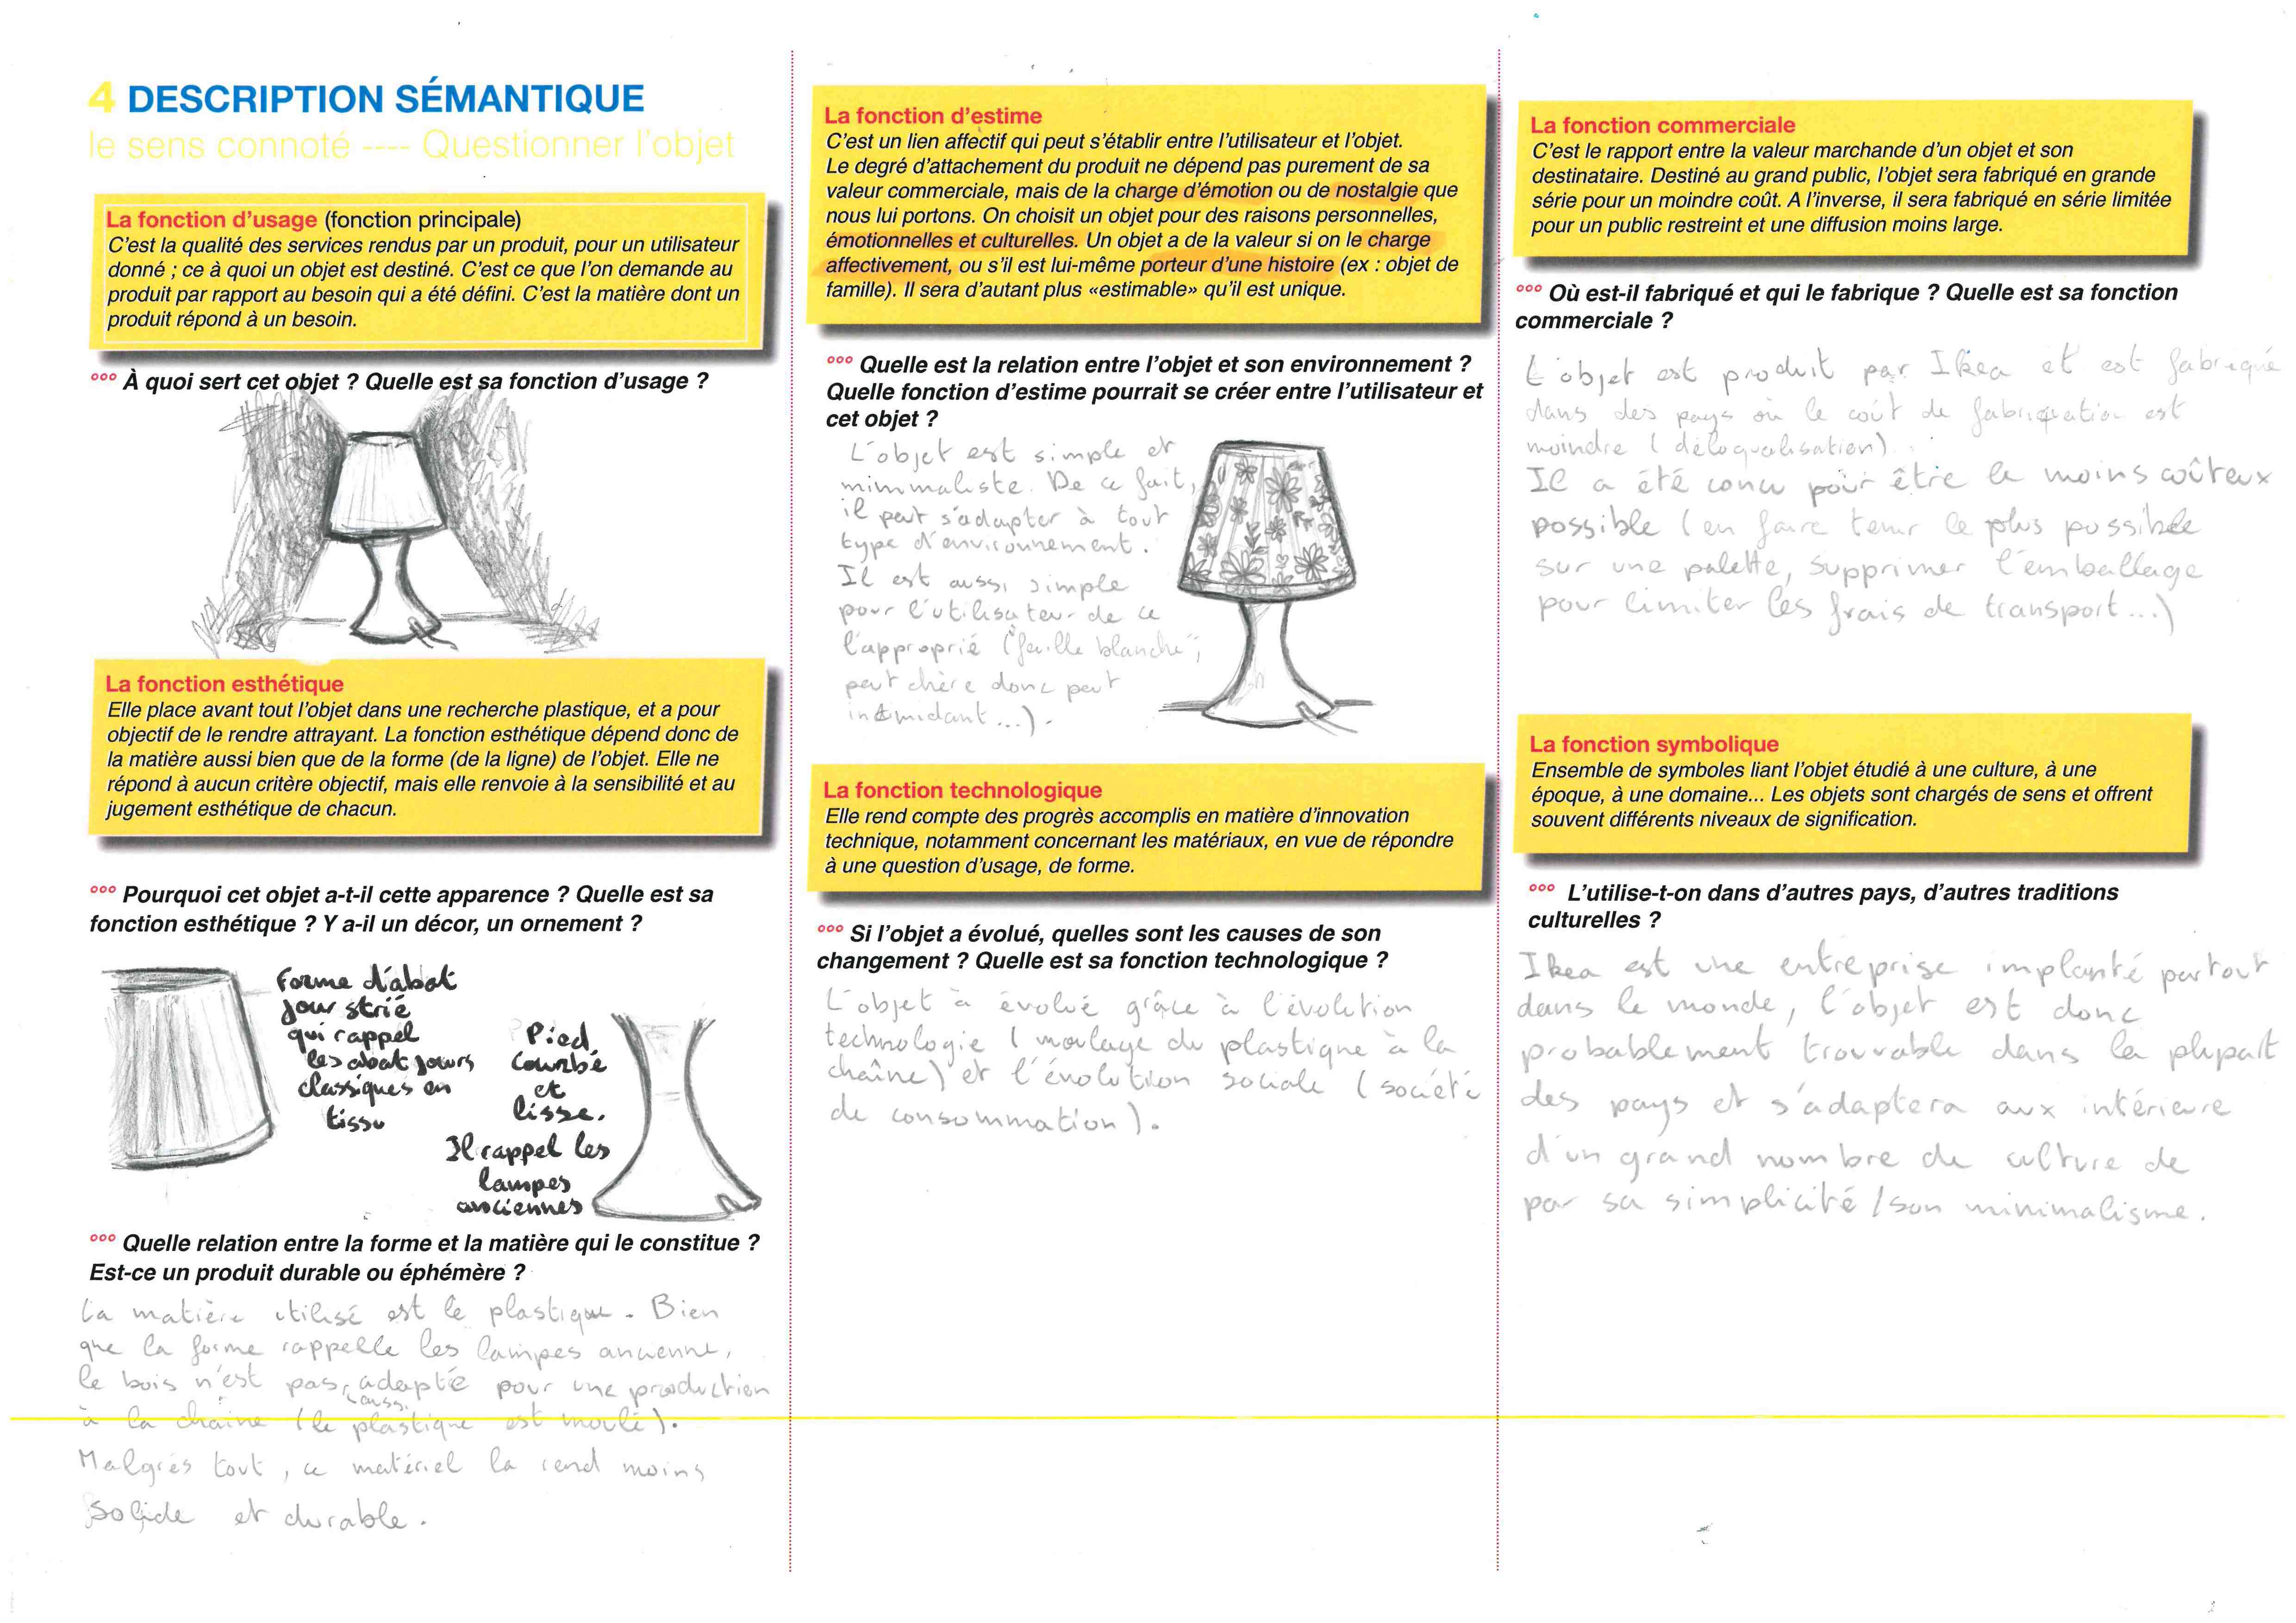 4 DESCRIPTION SÉMANTIQUE
le sens connoté ---- Questionner l'objet
La fonction d'usage (fonction principale)
C'est la qualité des services rendus par un produit, pour un utilisateur
donné ; ce à quoi un objet est destiné. C'est ce que l'on demande au
produit par rapport au besoin qui a été défini. C'est la matière dont un
produit répond à un besoin.
°°° À quoi sert cet objet ? Quelle est sa fonction d'usage ?
La fonction esthétique
Elle place avant tout l'objet dans une recherche plastique, et a pour
objectif de le rendre attrayant. La fonction esthétique dépend donc de
la matière aussi bien que de la forme (de la ligne) de l'objet. Elle ne
répond à aucun critère objectif, mais elle renvoie à la sensibilité et au
jugement esthétique de chacun.
°°° Pourquoi cet objet a-t-il cette apparence ? Quelle est sa
fonction esthétique ? Y a-il un décor, un ornement ?
Forme d'abat
jour strié
qui rappel
les abat jours
classiques en
tissu
Pied
courbé
et
lisse.
Il rappel les
lampes
anciennes
°°° Quelle relation entre la forme et la matière qui le constitue ?
Est-ce un produit durable ou éphémère ?
La matière utilisé est le plastique. Bien
que la forme rappelle les lampes ancienne,
le bois n'est pas adapté pour une production
aussi
à la chaîne (le plastique est moulé).
Malgrés tout, ce matériel la rend moins
solide et durable.
La fonction d'estime
C'est un lien affectif qui peut s'établir entre l'utilisateur et l'objet.
Le degré d'attachement du produit ne dépend pas purement de sa
valeur commerciale, mais de la charge d'émotion ou de nostalgie que
nous lui portons. On choisit un objet pour des raisons personnelles,
émotionnelles et culturelles. Un objet a de la valeur si on le charge
affectivement, ou s'il est lui-même porteur d'une histoire (ex : objet de
famille). Il sera d'autant plus «estimable» qu'il est unique.
°°° Quelle est la relation entre l'objet et son environnement ?
Quelle fonction d'estime pourrait se créer entre l'utilisateur et
cet objet ?
L'objet est simple et
minimaliste. De ce fait,
il peut s'adapter à tout
type d'environnement.
Il est aussi simple
pour l'utilisateur de ce
l'approprié ("feuille blanche";
peut chère donc peut
intimidant...).
La fonction technologique
Elle rend compte des progrès accomplis en matière d'innovation
technique, notamment concernant les matériaux, en vue de répondre
à une question d'usage, de forme.
°°° Si l'objet a évolué, quelles sont les causes de son
changement ? Quelle est sa fonction technologique ?
L'objet à évolué grâce à l'évolution
technologie (moulage du plastique à la
chaîne) et l'évolution sociale (société
de consommation).
La fonction commerciale
C'est le rapport entre la valeur marchande d'un objet et son
destinataire. Destiné au grand public, l'objet sera fabriqué en grande
série pour un moindre coût. A l'inverse, il sera fabriqué en série limitée
pour un public restreint et une diffusion moins large.
°°° Où est-il fabriqué et qui le fabrique ? Quelle est sa fonction
commerciale ?
L'objet est produit par Ikea et est fabriqué
dans des pays où le coût de fabriquation est
moindre (déloqualisation).
Il a été concu pour être le moins coûteux
possible (en faire tenir le plus possible
sur une palette, supprimer l'emballage
pour limiter les frais de transport...)
La fonction symbolique
Ensemble de symboles liant l'objet étudié à une culture, à une
époque, à une domaine... Les objets sont chargés de sens et offrent
souvent différents niveaux de signification.
°°° L'utilise-t-on dans d'autres pays, d'autres traditions
culturelles ?
Ikea est une entreprise implanté partout
dans le monde, l'objet est donc
probablement trouvable dans la plupart
des pays et s'adaptera aux intérieure
d'un grand nombre de culture de
par sa simplicité / son minimalisme.